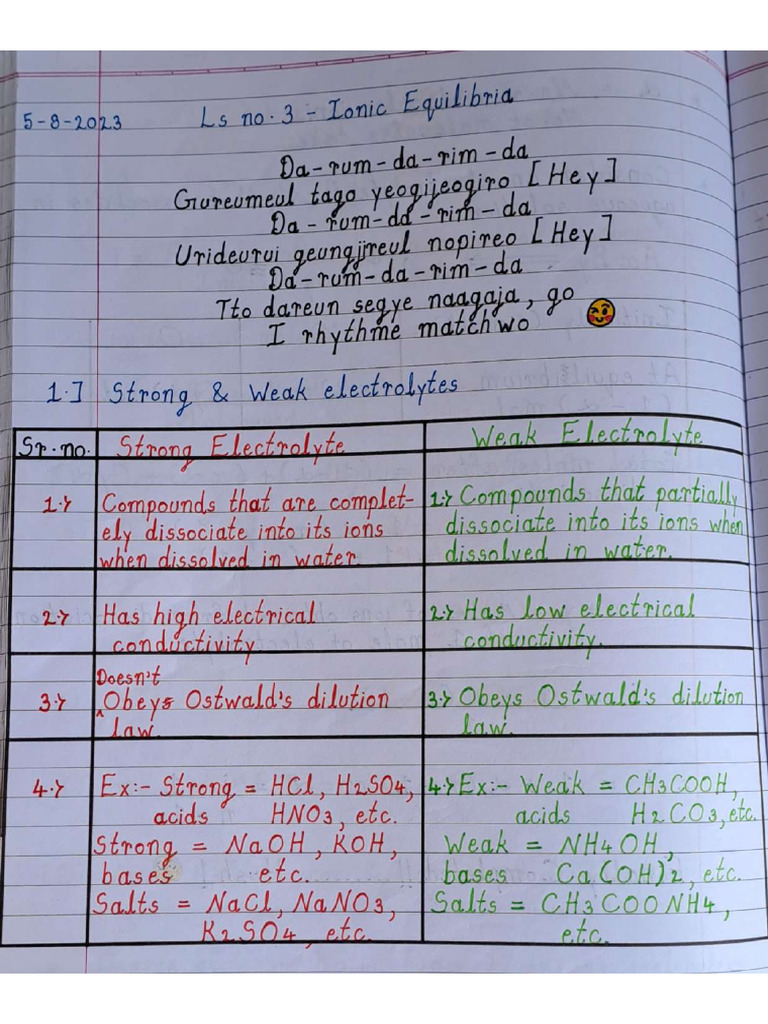 5-8-2023 Ls no. 3 - Ionic Equilibria
Da-rum-da-rim-da
Gureumeul tago yeogijeogiro [Hey]
Da-rum-da-rim-da
Urideurui geungjireul nopireo [Hey]
Da-rum-da-rim-da
Tto dareun segye naagaja, go
I rhythme matchwo
1.] Strong & Weak electrolytes
Sr. no. Strong Electrolyte Weak Electrolyte
1.> Compounds that are complet-
ely dissociate into its ions
when dissolved in water.
1.> Compounds that partially
dissociate into its ions when
dissolved in water.
2.> Has high electrical
conductivity
2.> Has low electrical
conductivity.
Doesn't
3.> Obeys Ostwald's dilution
law.
3.> Obeys Ostwald's dilution
law.
4.> Ex:- Strong = HCl, H2SO4,
acids HNO3, etc.
Strong = NaOH, KOH,
bases etc.
Salts = NaCl, NaNO3,
K2SO4, etc.
4.> Ex:- Weak = CH3COOH,
acids H2CO3, etc.
Weak = NH4OH,
bases Ca(OH)2, etc.
Salts = CH3COONH4,
etc.